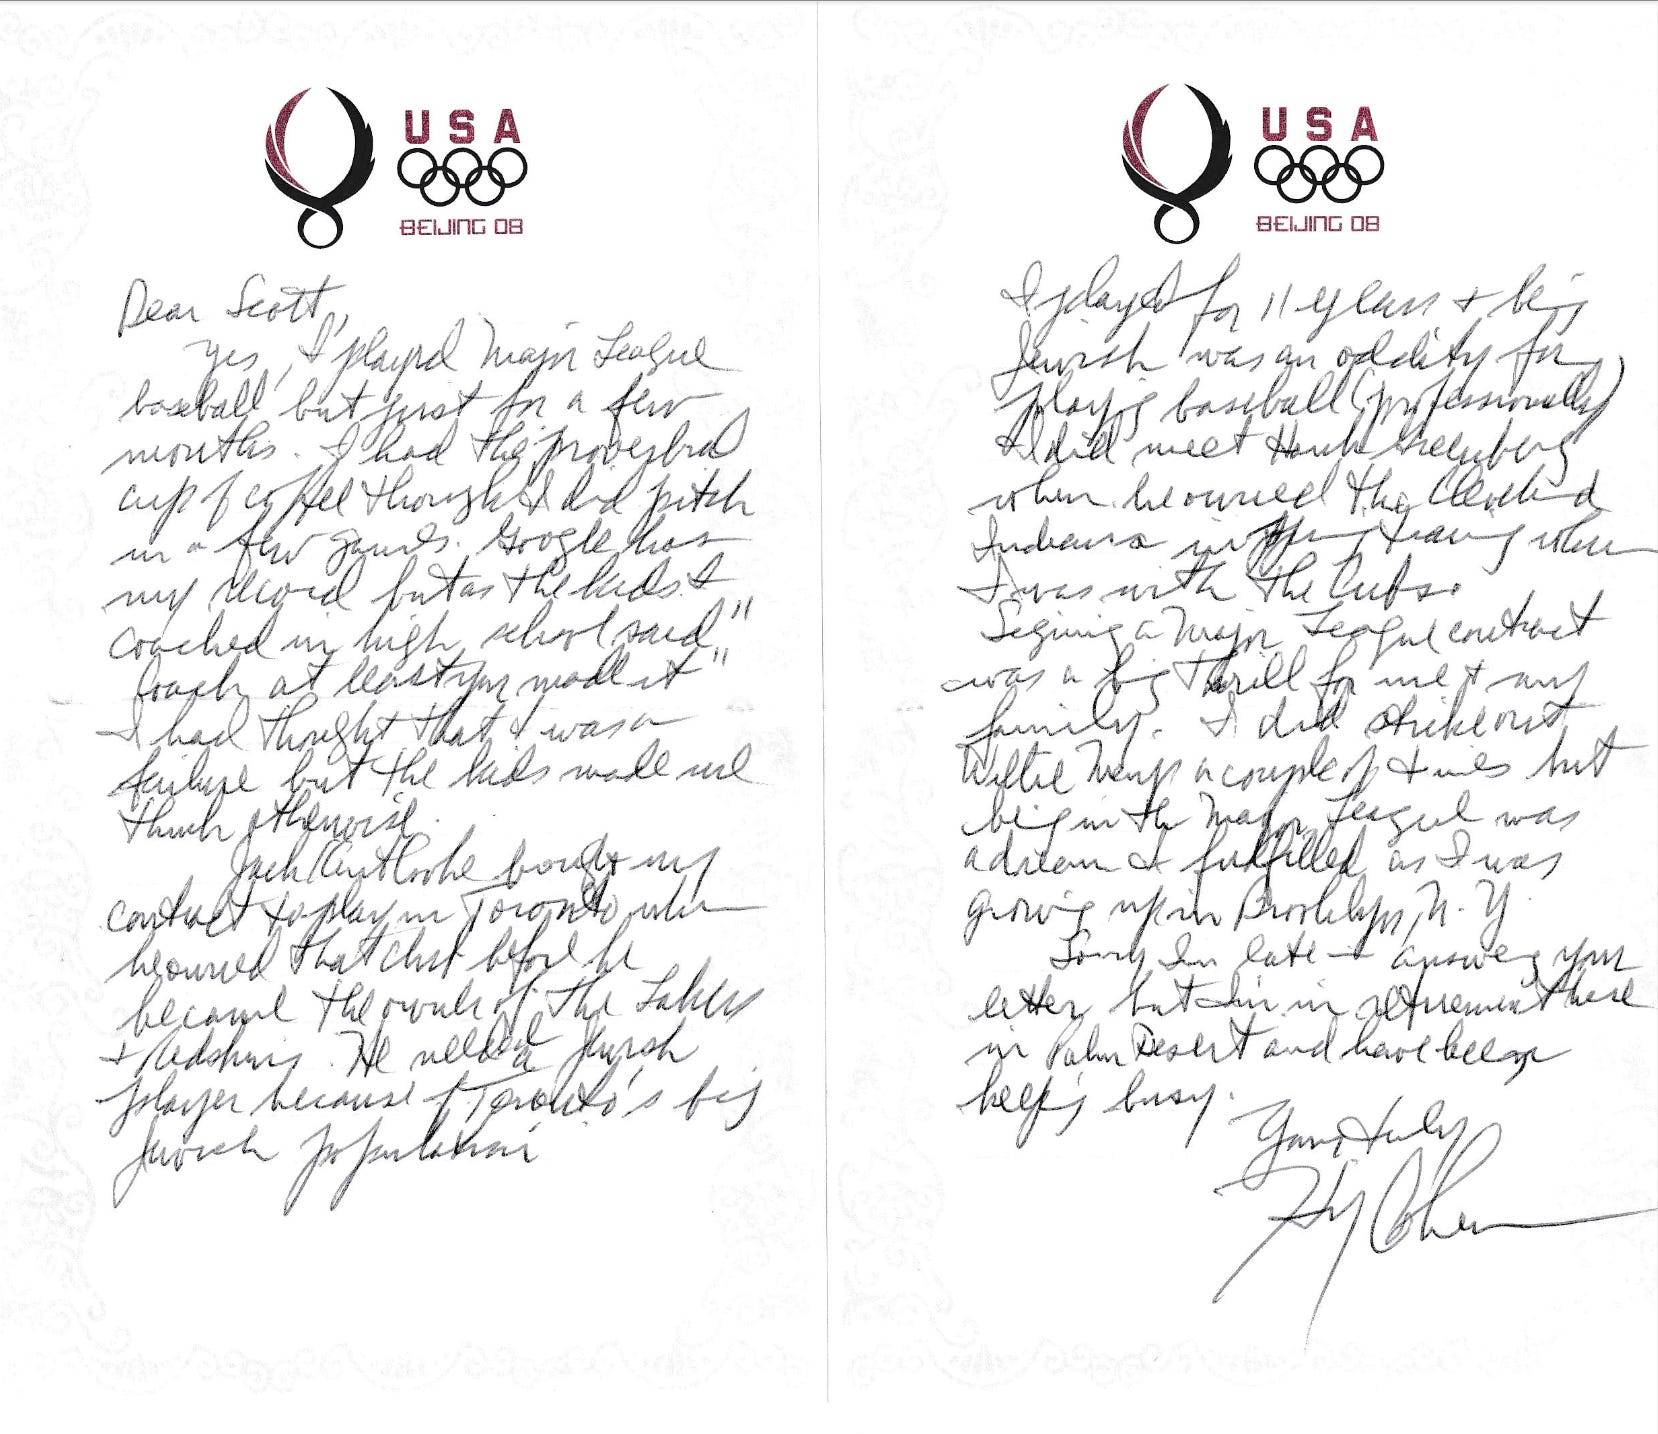 USA
BEIJING 08
Dear Scott,
Yes, I played Major League
baseball, but just for a few
months. I had the proverbial
cup of coffee though I did pitch
in a few games. Google has
my record but as the kids I
coached in high school said, "
Coach, at least you made it"
I had thought that I was a
failure but the kids made me
think otherwise.
Jack Kent Cooke bought my
contract to play in Toronto when
he owned that club before he
became the owner of the Lakers
+ Redskins. He needed a Jewish
player because of Toronto's big
Jewish population
USA
BEIJING 08
I played for 11 years + being
Jewish was an oddity for
playing baseball (professionally)
I did meet Hank Greenberg
when he owned the Cleveland
Indians in spring training when
I was with the Cubs.
Signing a Major League contract
was a big thrill for me + my
family. I did strike out
Willie Mays a couple of times but
being in the Major League was
a dream I fulfilled as I was
growing up in Brooklyn, N.Y.
Sorry I'm late in answering your
letter but I'm in retirement here
in Palm Desert and have been
keeping busy.
Yours truly
Hy Cohen